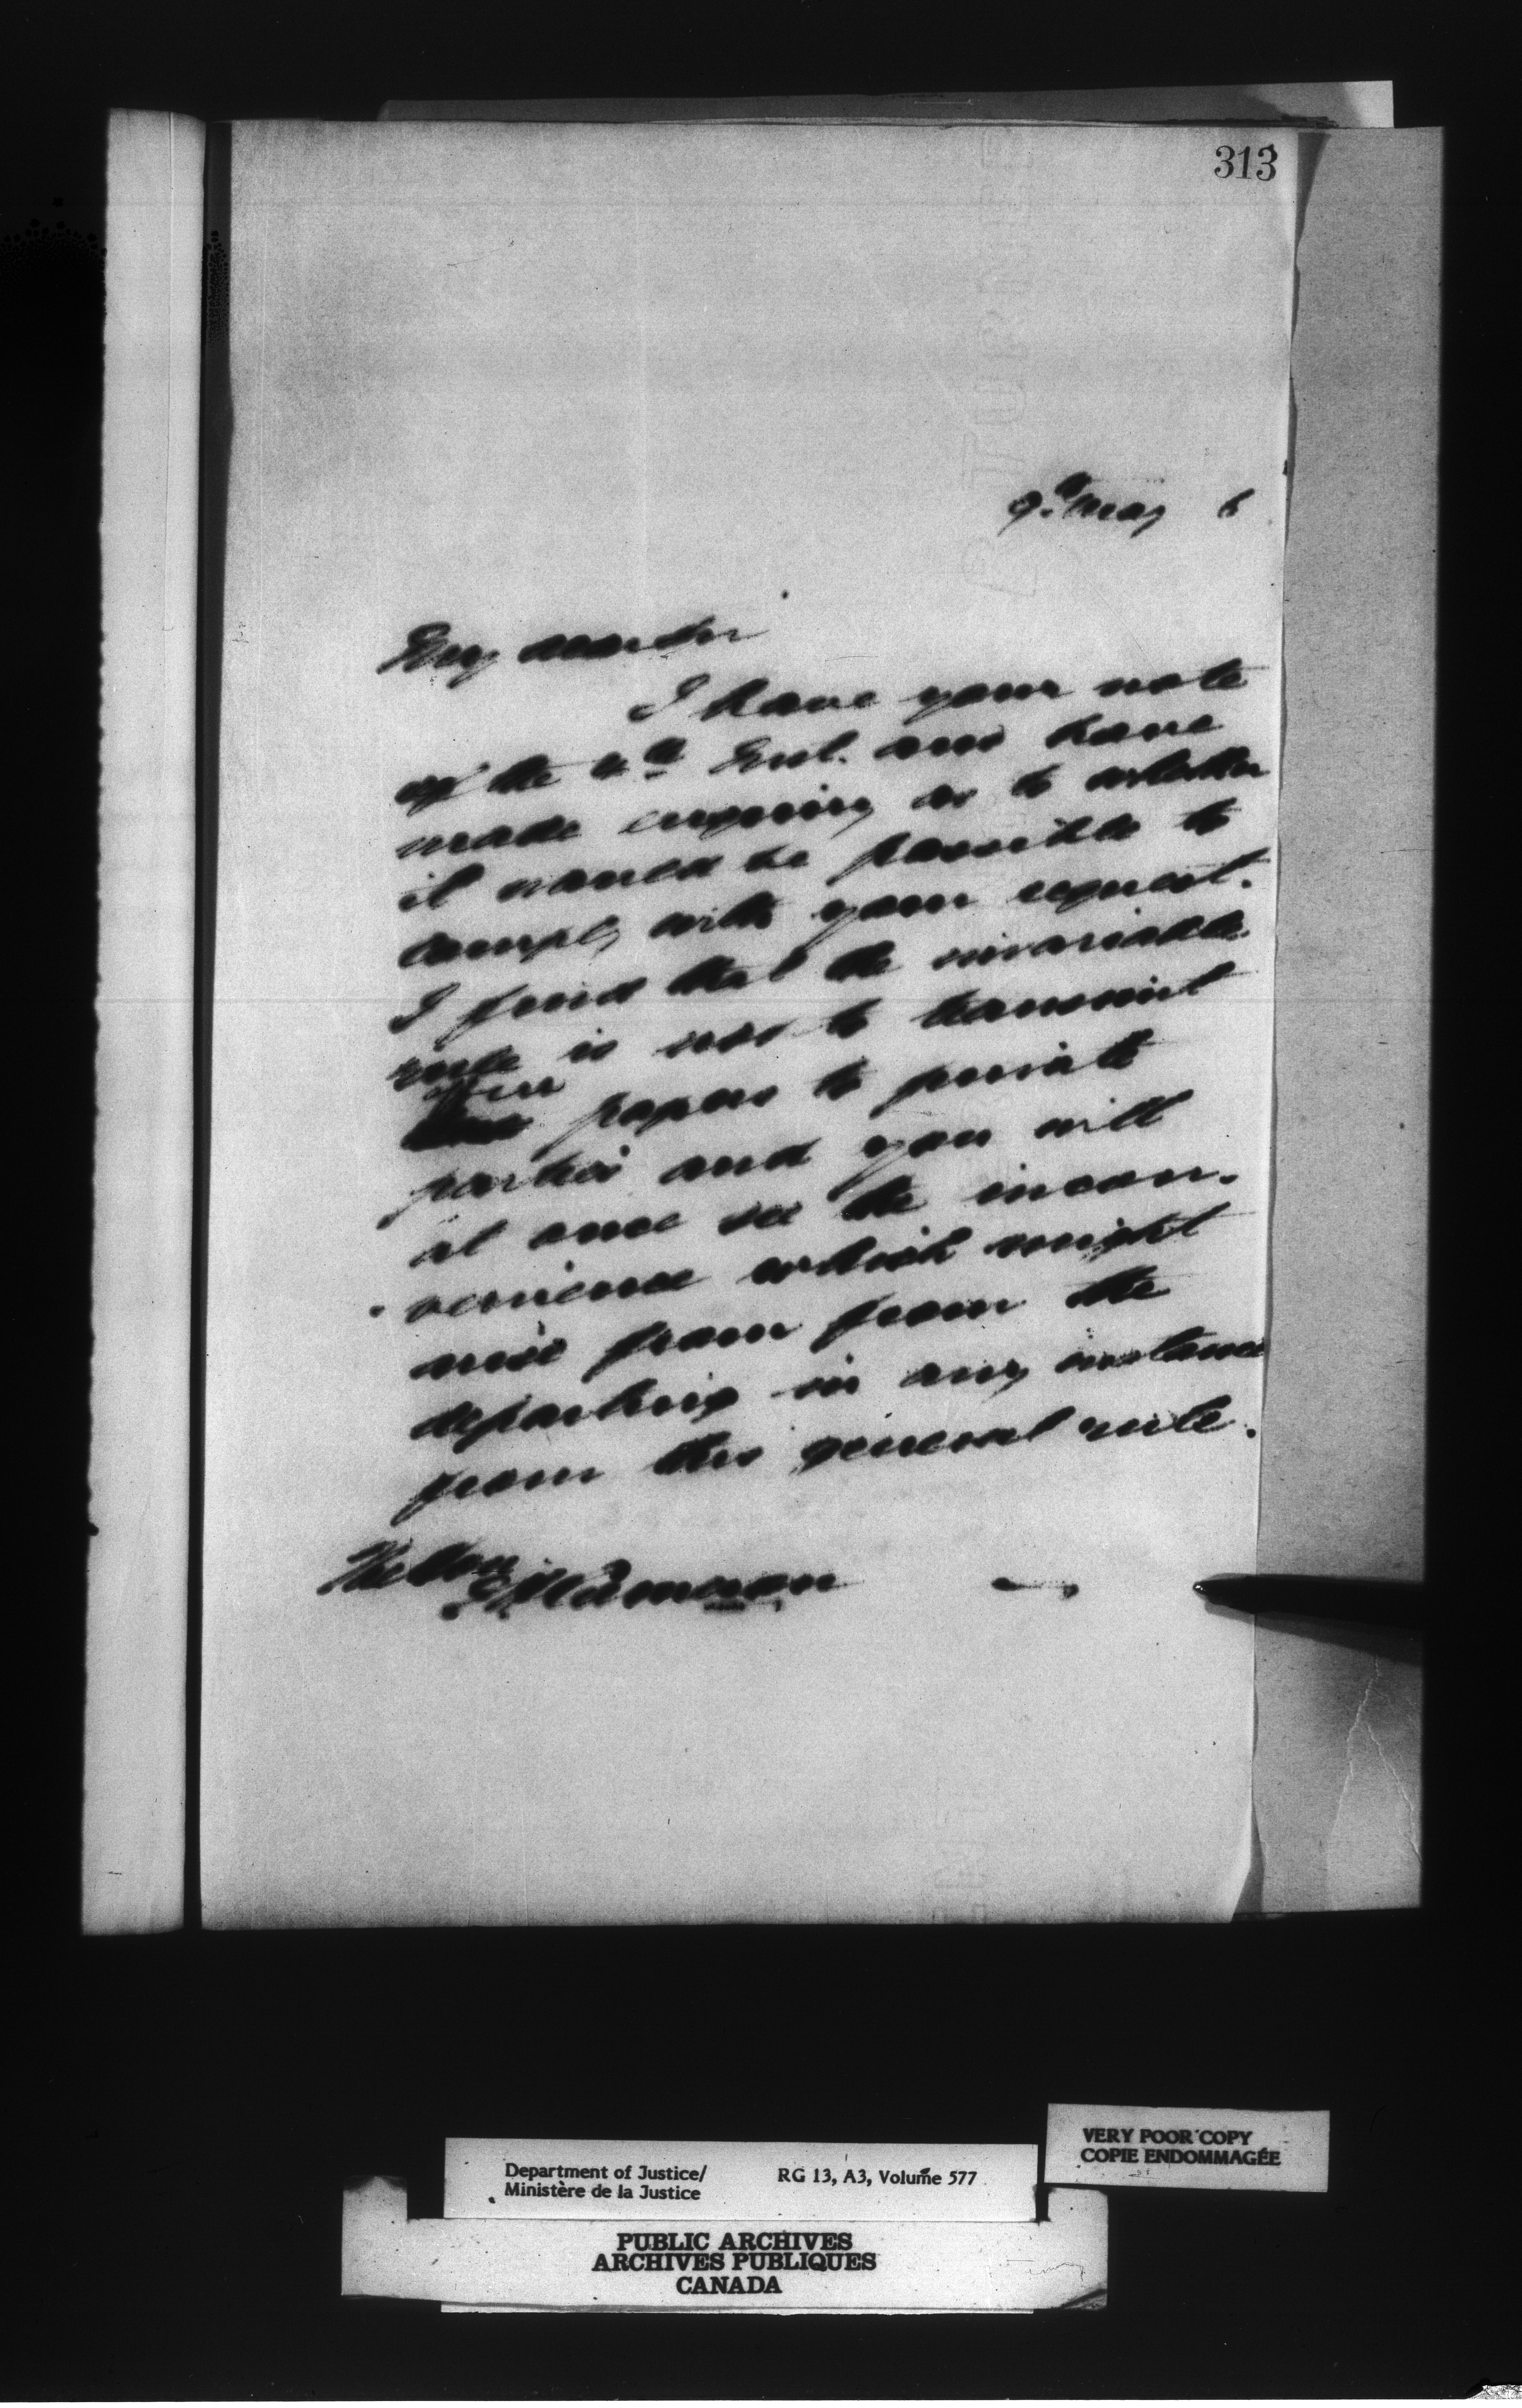 313
9th May 6
My dear Sir
I have your note
of the 4th Inst. and have
made enquiry as to whether
it would be possible to
comply with your request.
I find that the invariable
rule is not to transmit
papers to private
parties and you will
at once see the incon-
venience which might
arise from from the
departing in any instance
from this general rule.
The Hon
Cameron
VERY POOR COPY
COPIE ENDOMMAGÉE
Department of Justice/ RG 13, A3, Volume 577
Ministère de la Justice
PUBLIC ARCHIVES
ARCHIVES PUBLIQUES
CANADA